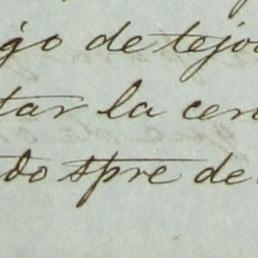 go de tejo
tar la cer
do spre de